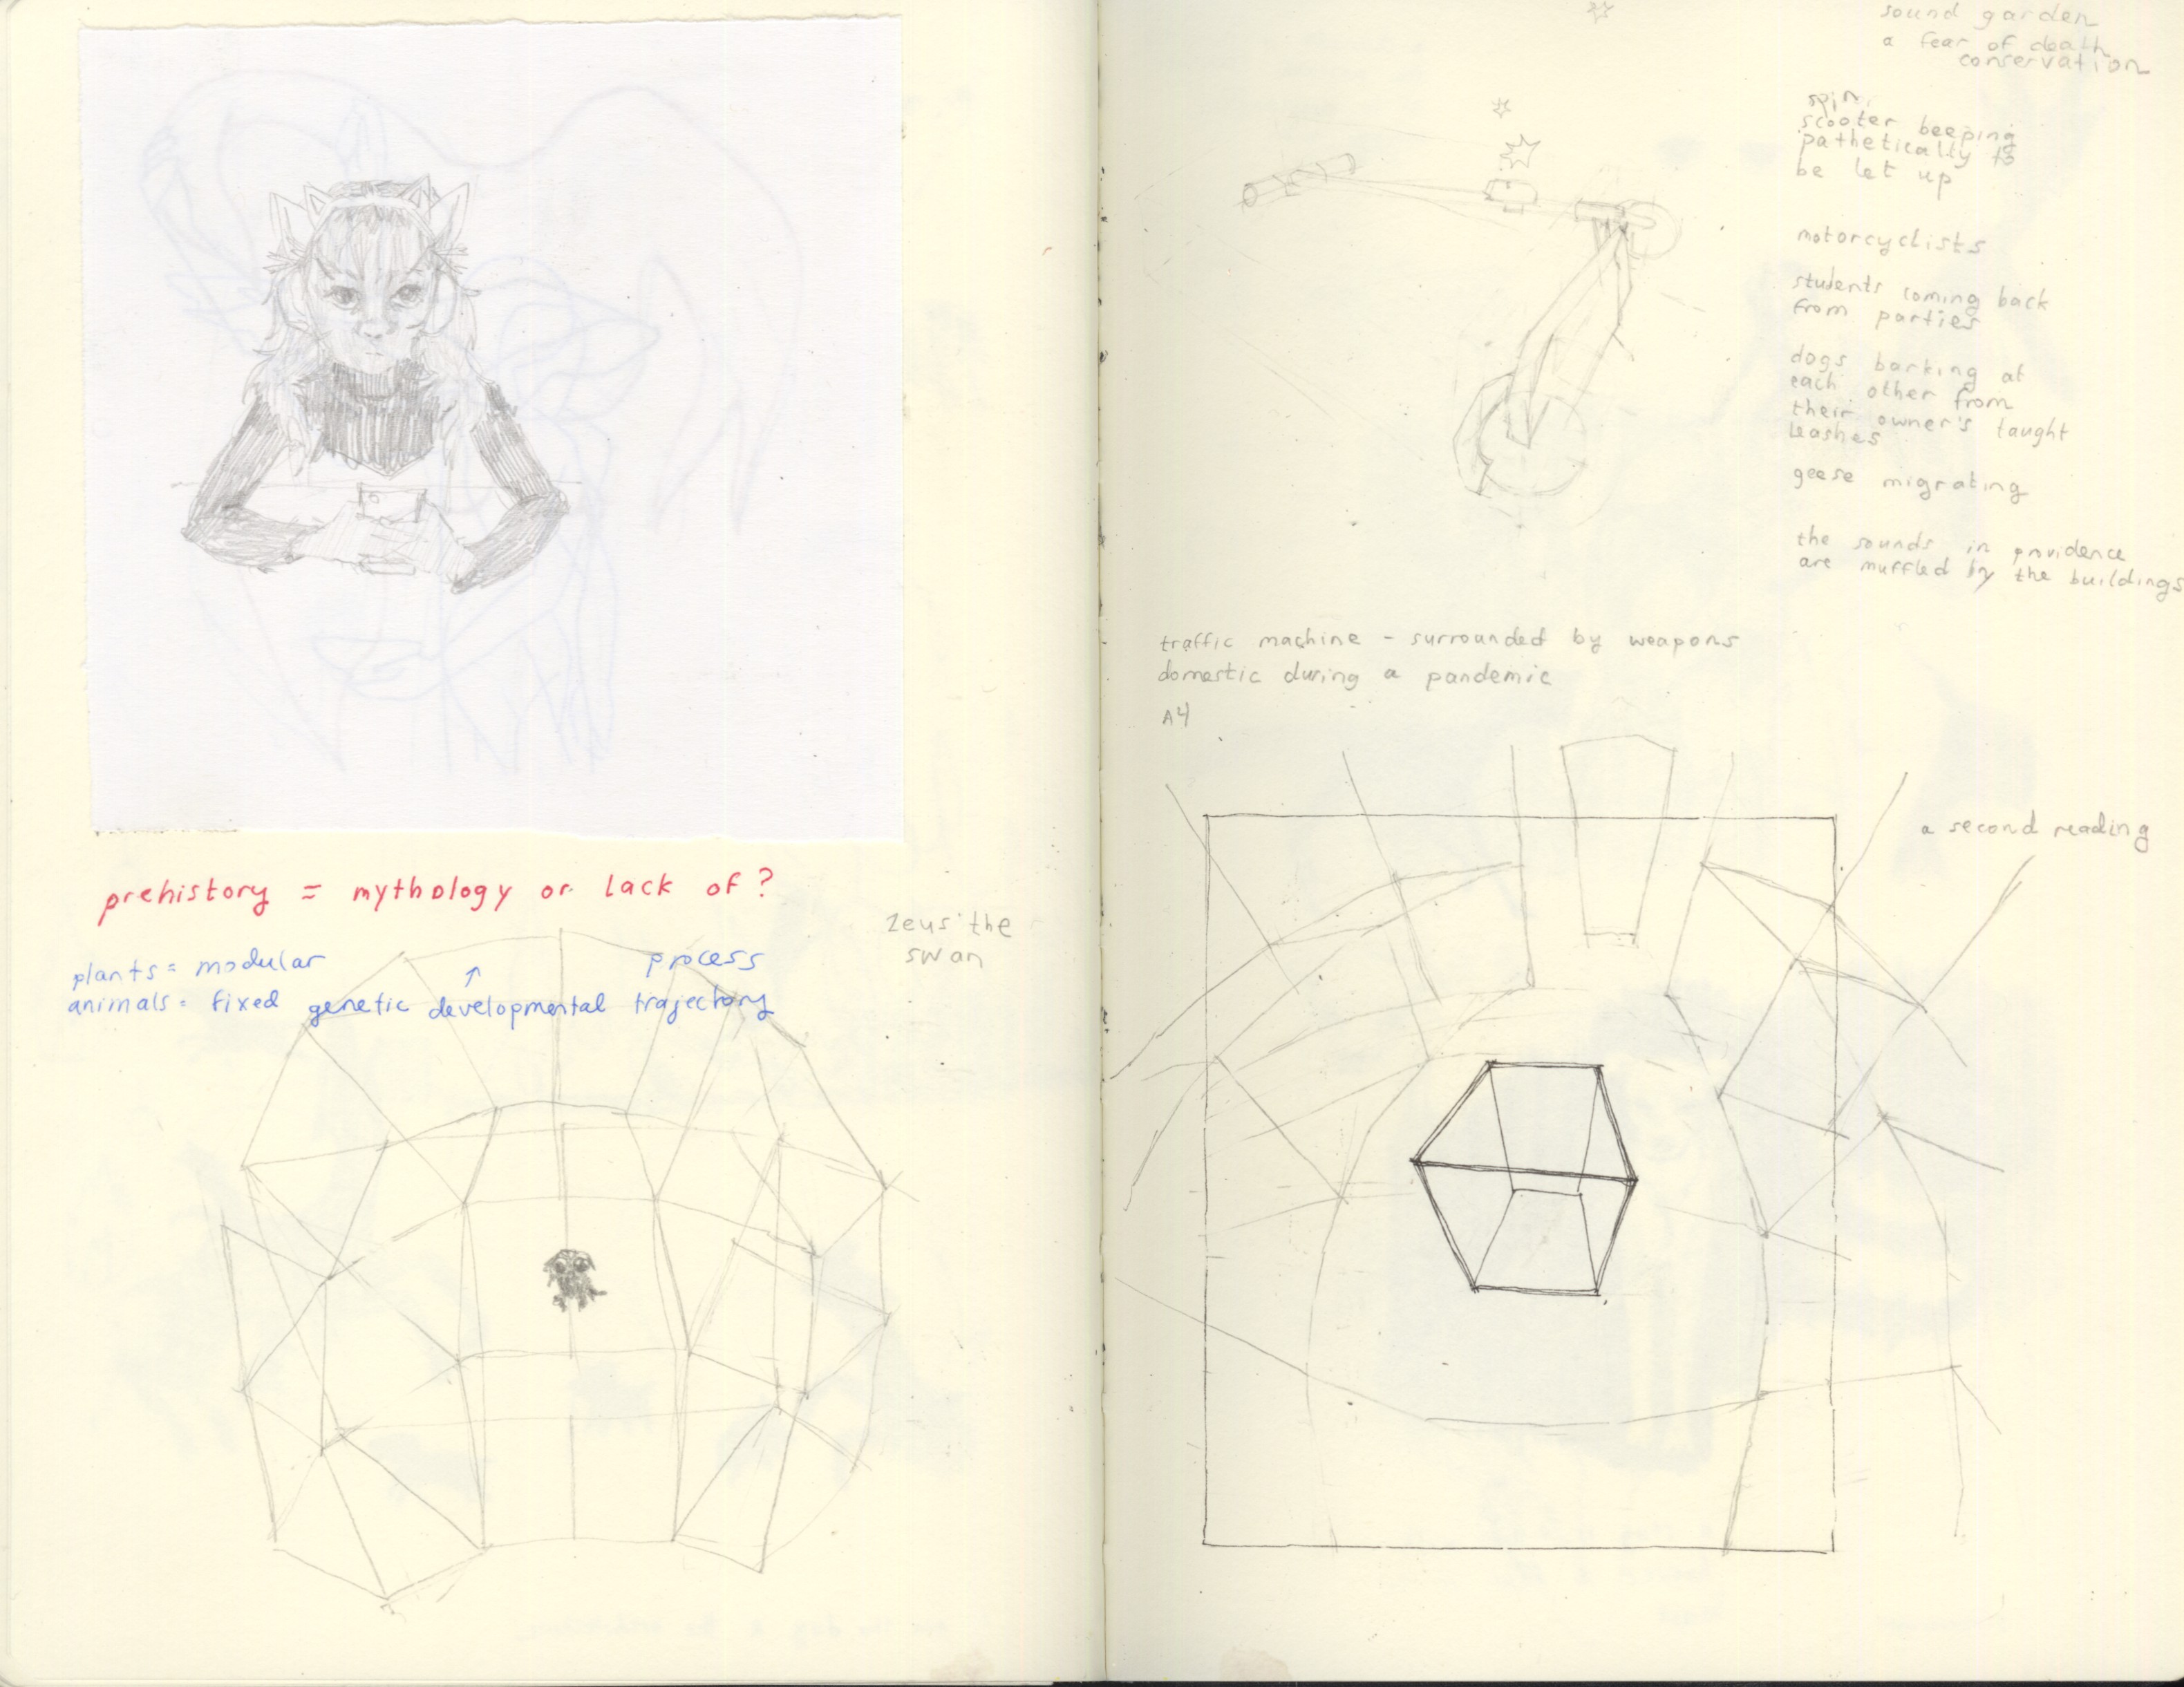 prehistory = mythology or lack of?
zeus the
swan
plants = modular
process
↑
animals = fixed genetic developmental trajectory
sound garden
a fear of death
conservation
spin
scooter beeping
pathetically to
be let up
motorcyclists
students coming back
from parties
dogs barking at
each other from
their owner's taught
leashes
geese migrating
the sounds in providence
are muffled by the buildings
traffic machine - surrounded by weapons
domestic during a pandemic
A4
a second reading